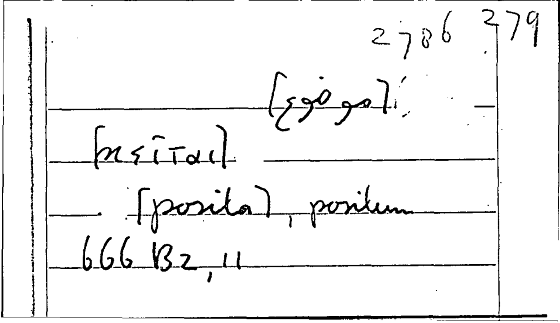 279
[κεῖται]
[posita], positum
666 B2, 11